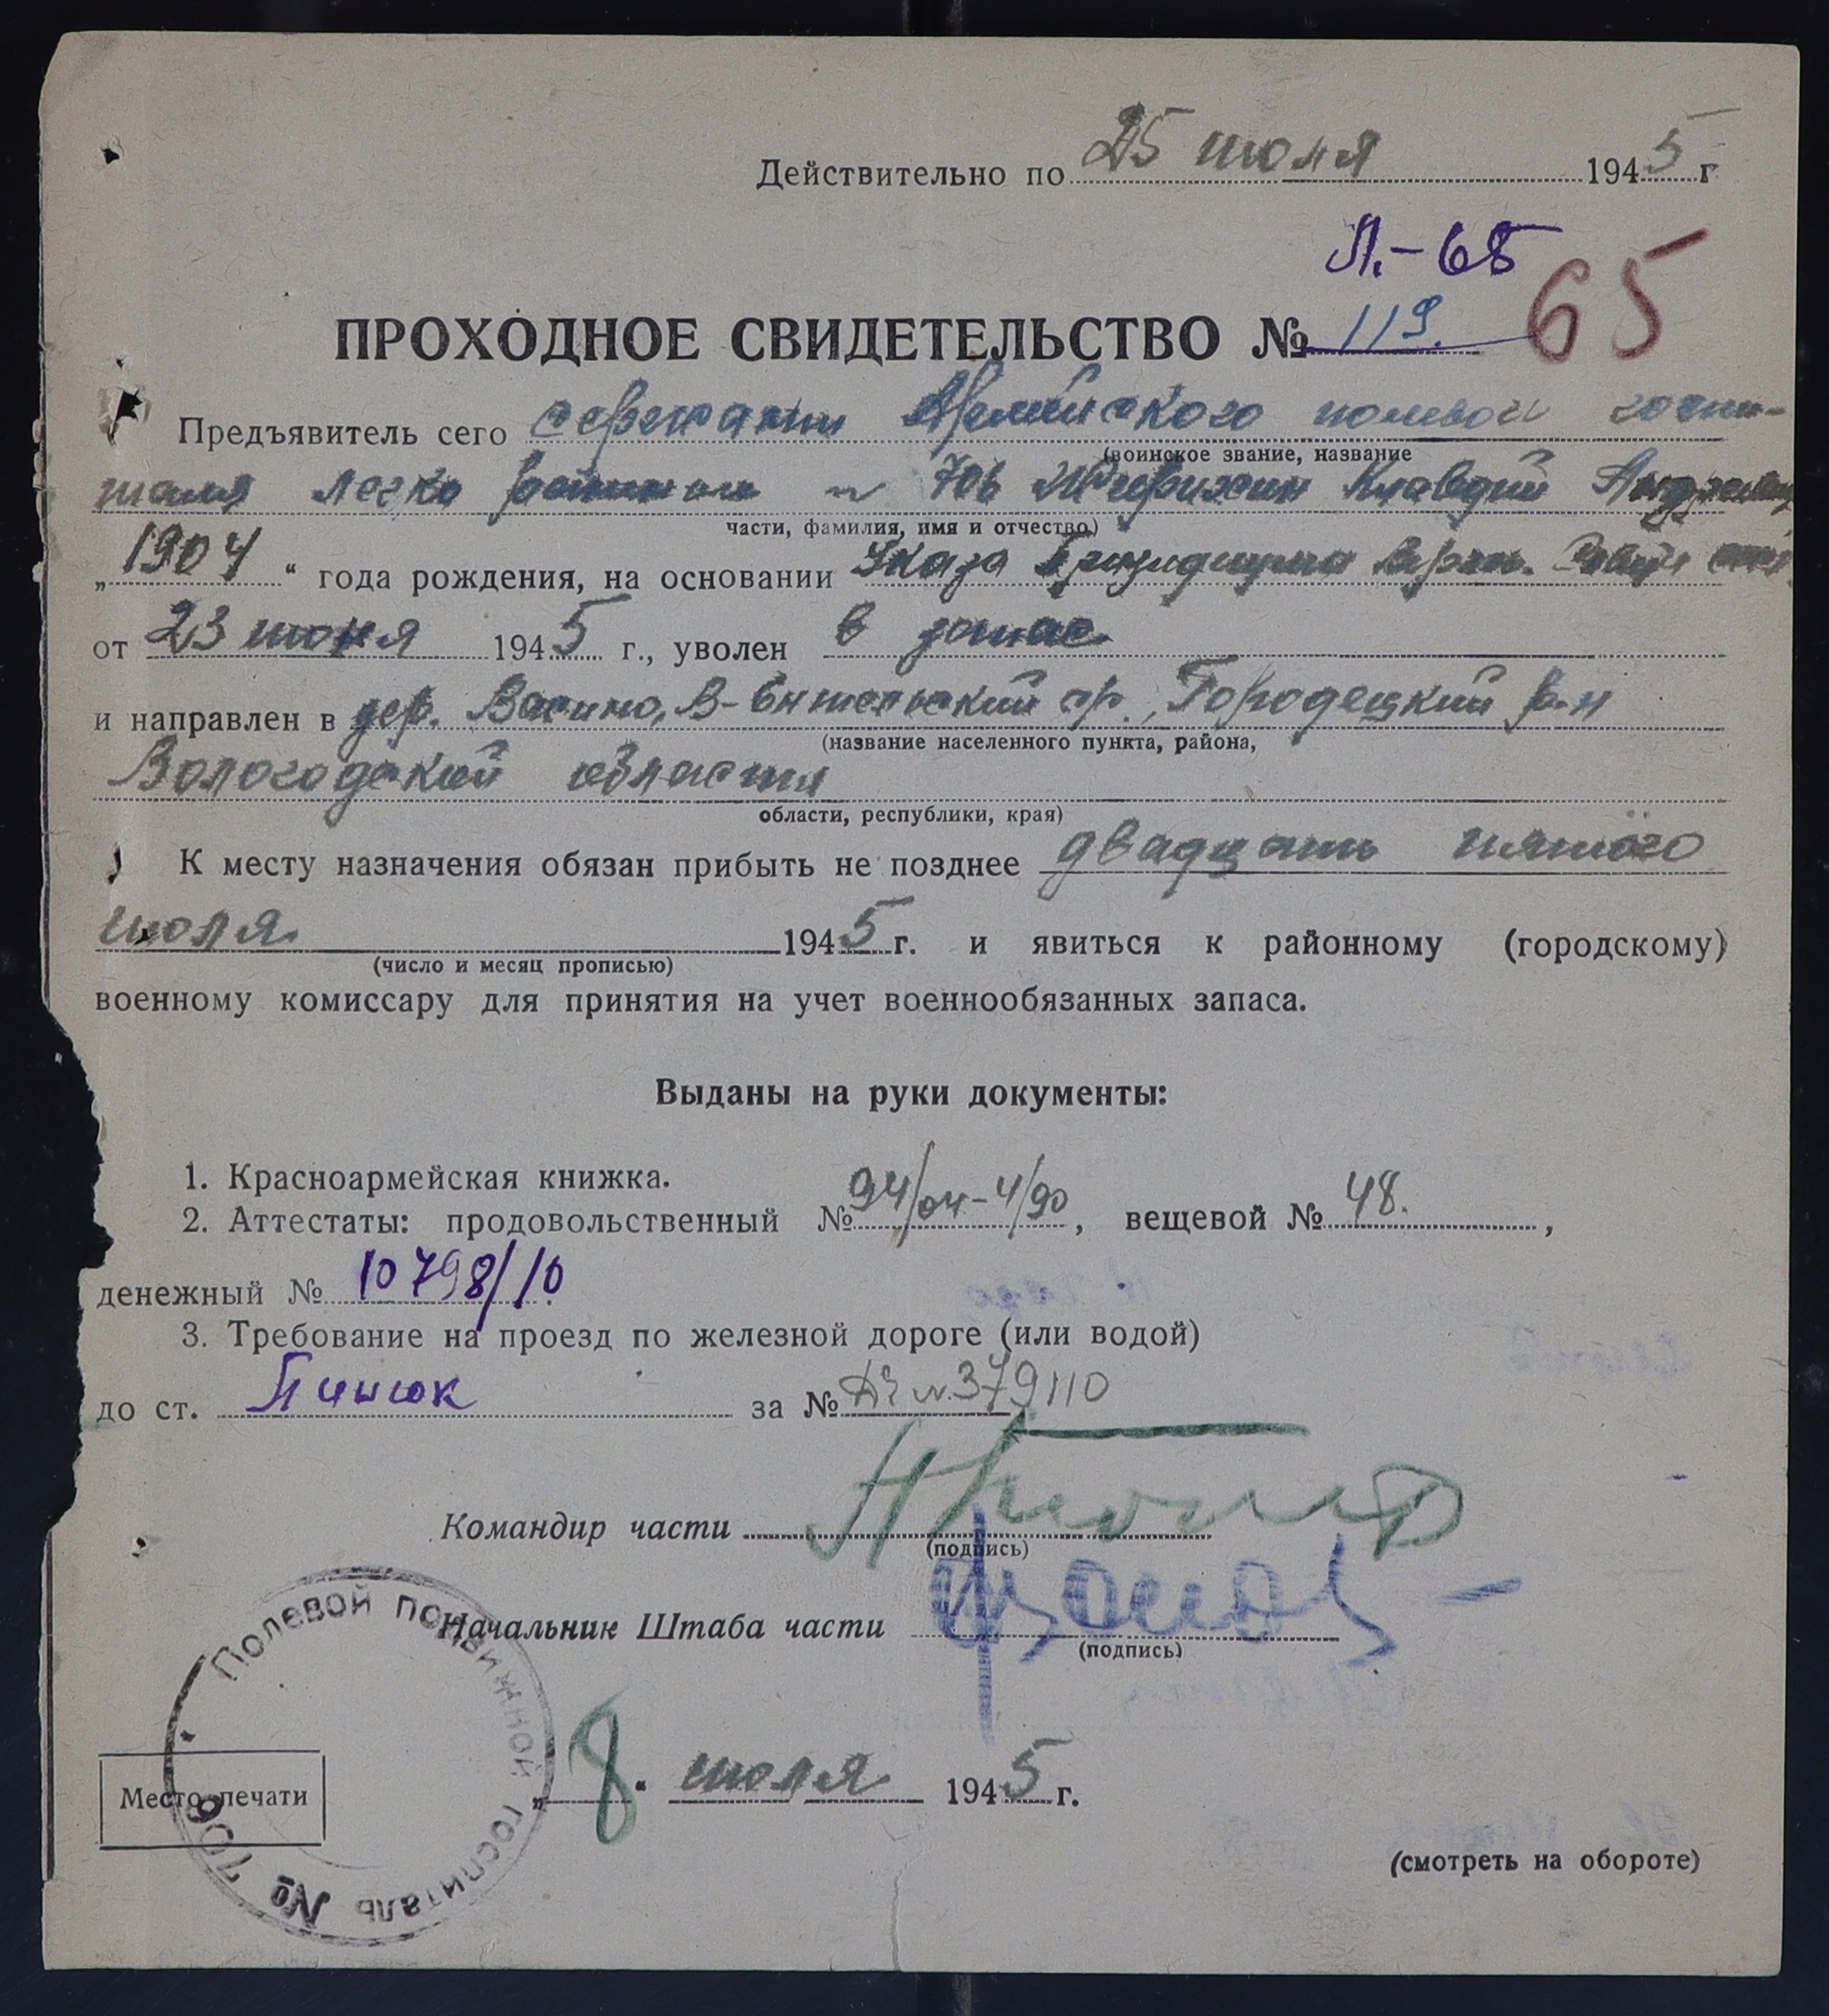 Действительно по 25 июля 1945 г
Л.-65
65
ПРОХОДНОЕ СВИДЕТЕЛЬСТВО № 119.
Предъявитель сего сержант Армейского полевой госпи-
(воинское звание, название
таля легко раненых № 706 Клавдий
части, фамилия, имя и отчество)
„1904“ года рождения, на основании Указа Президиума Верх.
от 23 июня 1945 г., уволен в запас
и направлен в дер. Васино, Городецкий р-н
(название населенного пункта, района,
Вологодской области
области, республики, края)
К месту назначения обязан прибыть не позднее двадцать пятого
июля 1945 г. и явиться к районному (городскому)
(число и месяц прописью)
военному комиссару для принятия на учет военнообязанных запаса.
Выданы на руки документы:
1. Красноармейская книжка.
2. Аттестаты: продовольственный № 94/04-4/90, вещевой № 48.,
денежный № 10798/10.
3. Требование на проезд по железной дороге (или водой)
до ст. Пинюк за № 379110
Командир части
(подпись)
Начальник Штаба части
(подпись)
Полевой подвижной госпиталь № 706
Место печати
„8“ июля 1945 г.
(смотреть на обороте)